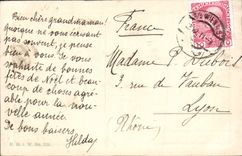 Bien chère grand'maman
quoique ne vous écrivant
pas souvent, je pense
bien à vous. Je vous
souhaite de bonnes
fêtes de Noël et beau
coup de choses agré
able pour la nou
velle année.
De bons baisers
Hilda
France
Madame P. Dubois
3, rue de Vauban
Lyon
Rhône